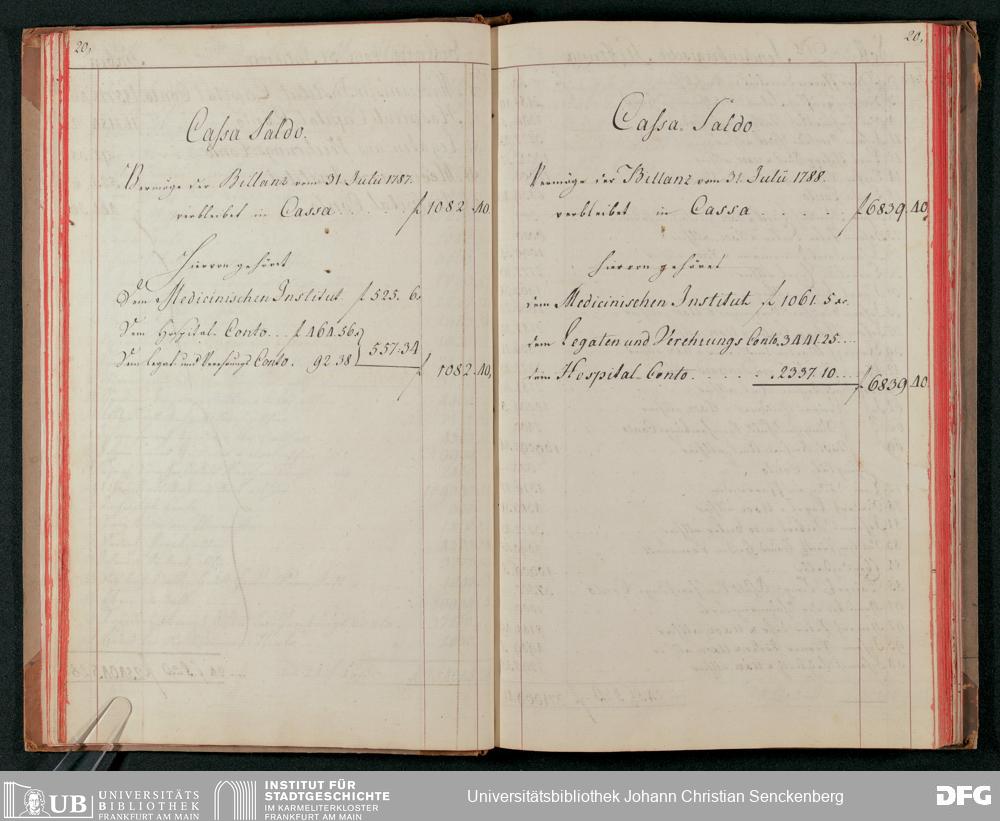 20,
Cassa Saldo.
Vermöge der Billanz vom 31. Julii 1787.
verbleibet in Cassa . . . . . f 1082 . 40.
Hiervon gehöret
Dem Medicinischen Institut f 525. 6.
Dem Hospital Conto . . f 464.56
Dem Legat und Verehrungs Conto . 92.38 557.34
f 1082 . 40.
20.
Cassa Saldo
Vermöge der Billanz vom 31. Julii 1788.
verbleibet in Cassa . . . . . f 6839. 40.
hiervon gehöret
dem Medicinischen Institut f 1061. 5
dem Legaten und Verehrungs Conto. 3441.25 . . .
dem Hospital-Conto . . . . . . 2337.10 . . .
f 6839 40.
UB UNIVERSITÄTS
BIBLIOTHEK
FRANKFURT AM MAIN
INSTITUT FÜR
STADTGESCHICHTE
IM KARMELITERKLOSTER
FRANKFURT AM MAIN
Universitätsbibliothek Johann Christian Senckenberg
DFG